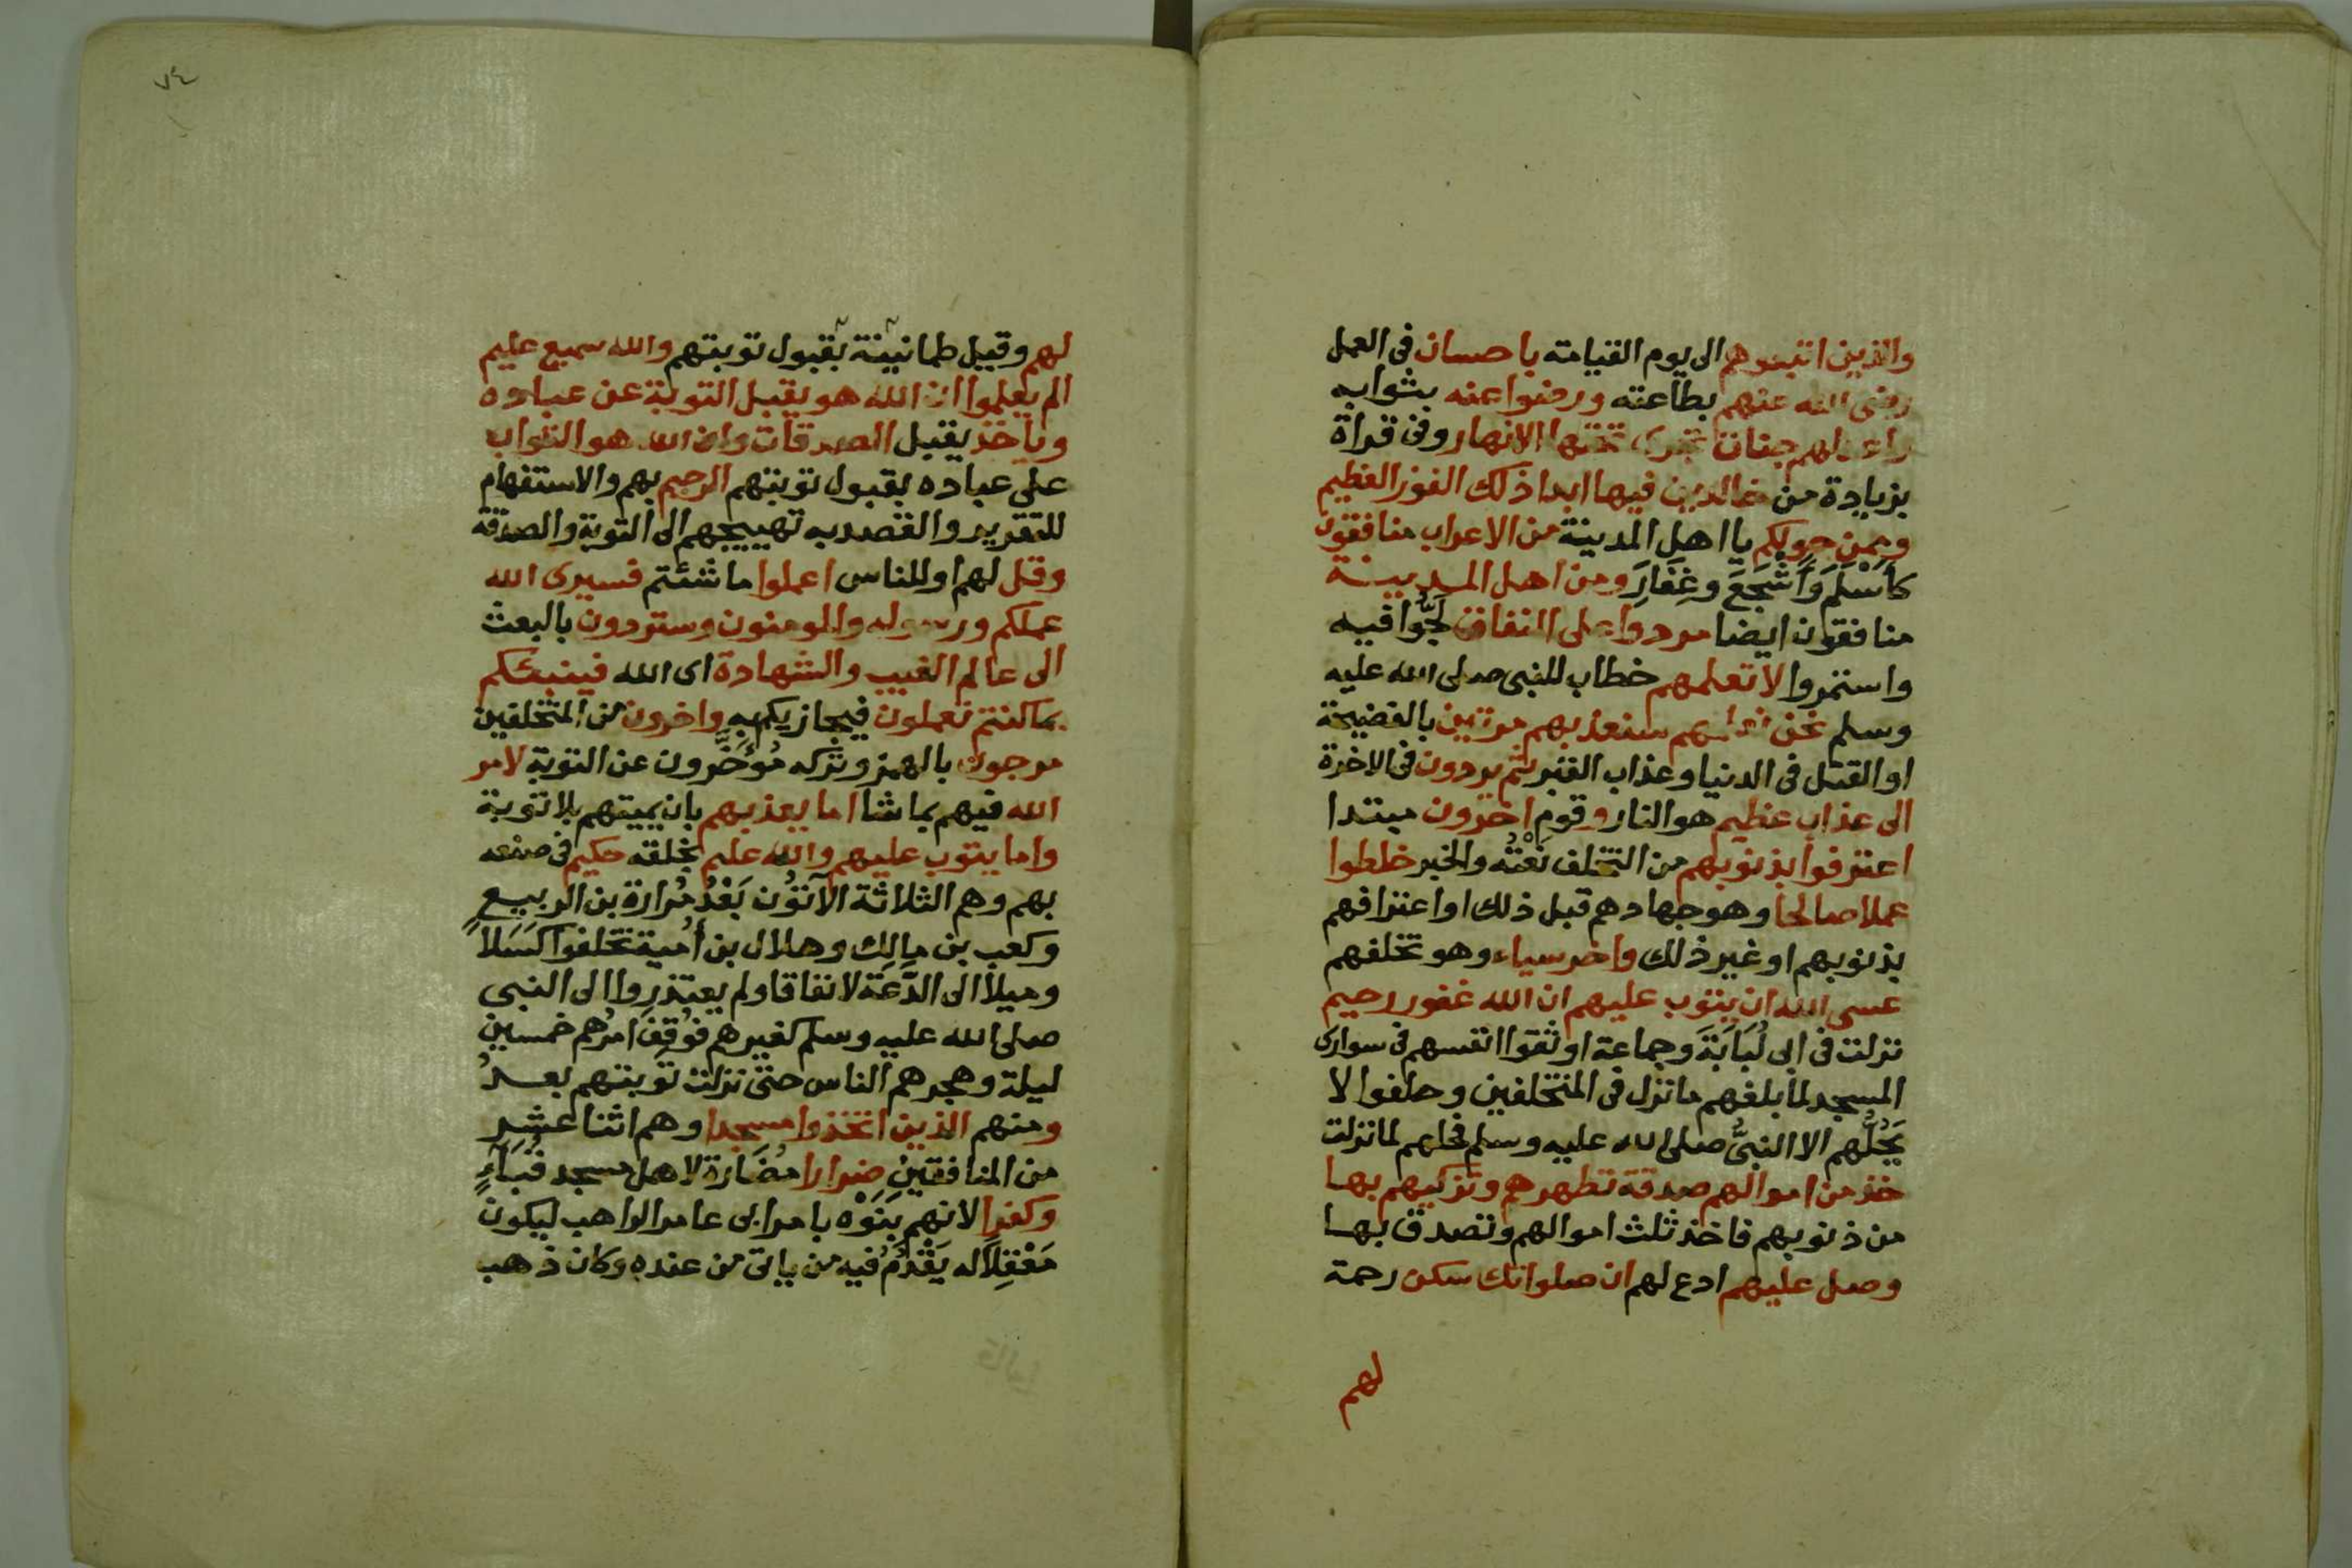 والذين اتبعوهم الى يوم القيامة باحسان فى العمل
رضى الله عنهم بطاعته ورضوا عنه بثوابه
واعد لهم جنات تجرى تحتها الانهار وفى قراة
بزيادة من خالدين فيها ابدا ذلك الفوز العظيم
وممن حولكم يا اهل المدينة من الاعراب منافقون
كَأَسْلَمَ وَأَشْجَعَ وغِفَارَ ومن اهل المدينة
منافقون ايضا مردوا على النفاق لَجُّوا فيه
واستمروا لا تعلمهم خطاب للنبى صلى الله عليه
وسلم نحن نعلمهم سنعذبهم مرتين بالفضيحة
او القتل فى الدنيا وعذاب القبر ثم يردون فى الاخرة
الى عذاب عظيم هو النار وقوم اخرون مبتدا
اعترفوا بذنوبهم من التخلف نَعْتُه والخبر خلطوا
عملا صالحا وهو جهادهم قبل ذلك او اعترافهم
بذنوبهم او غير ذلك واخر سياء وهو تخلفهم
عسى الله ان يتوب عليهم ان الله غفور رحيم
نزلت فى ابى لُبَابَةَ وجماعة اوثقوا انفسهم فى سوارى
المسجد لما بلغهم ما نزل فى المتخلفين وحلفوا لا
يَحُلُّهم الا النبىُّ صلى الله عليه وسلم فحلهم لما نزلت
خذ من اموالهم صدقة تطهرهم وتزكيهم بها
من ذنوبهم فاخذ ثلث اموالهم وتصدق بها
وصل عليهم ادع لهم ان صلواتك سكن رحمة
لهم
٧٤
لهم وقيل طمانينة بقبول توبتهم والله سميع عليم
الم يعلموا ان الله هو يقبل التوبة عن عباده
وياخذ يقبل الصدقات وان الله هو التواب
على عباده بقبول توبتهم الرحيم بهم والاستفهام
للتقرير والقصد به تهييجهم الى التوبة والصدقة
وقل لهم او للناس اعملوا ما شئتم فسيرى الله
عملكم ورسوله والمومنون وستردون بالبعث
الى عالم الغيب والشهادة اى الله فينبئكم
بما كنتم تعملون فيجازيكم به واخرون من المتخلفين
مرجون بالهمز وتركه مُؤَخَّرون عن التوبة لامر
الله فيهم بما شا اما يعذبهم بان يميتهم بلا توبة
واما يتوب عليهم والله عليم بخلقه حكيم فى صنعه
بهم وهم الثلاثة الآتُون بَعْدُ مُرارة بن الربيع
وكعب بن مالك وهلال بن أُمية تخلفوا كَسَلاً
وميلا الى الدَّعَة لا نفاقا ولم يعتذروا الى النبى
صلى الله عليه وسلم كغيرهم فوُقِفَ امرُهم خمسين
ليلة وهجرهم الناس حتى نزلت توبتهم بعدُ
ومنهم الذين اتخذوا مسجدا وهم اثنا عشر
من المنافقين ضرارا مُضَارة لاهل مسجد قُبَاءٍ
وكفرا لانهم بَنَوْه بامر ابى عامر الراهب ليكون
مَعْقِلاً له يَقْدَمُ فيه من ياتى من عنده وكان ذهب